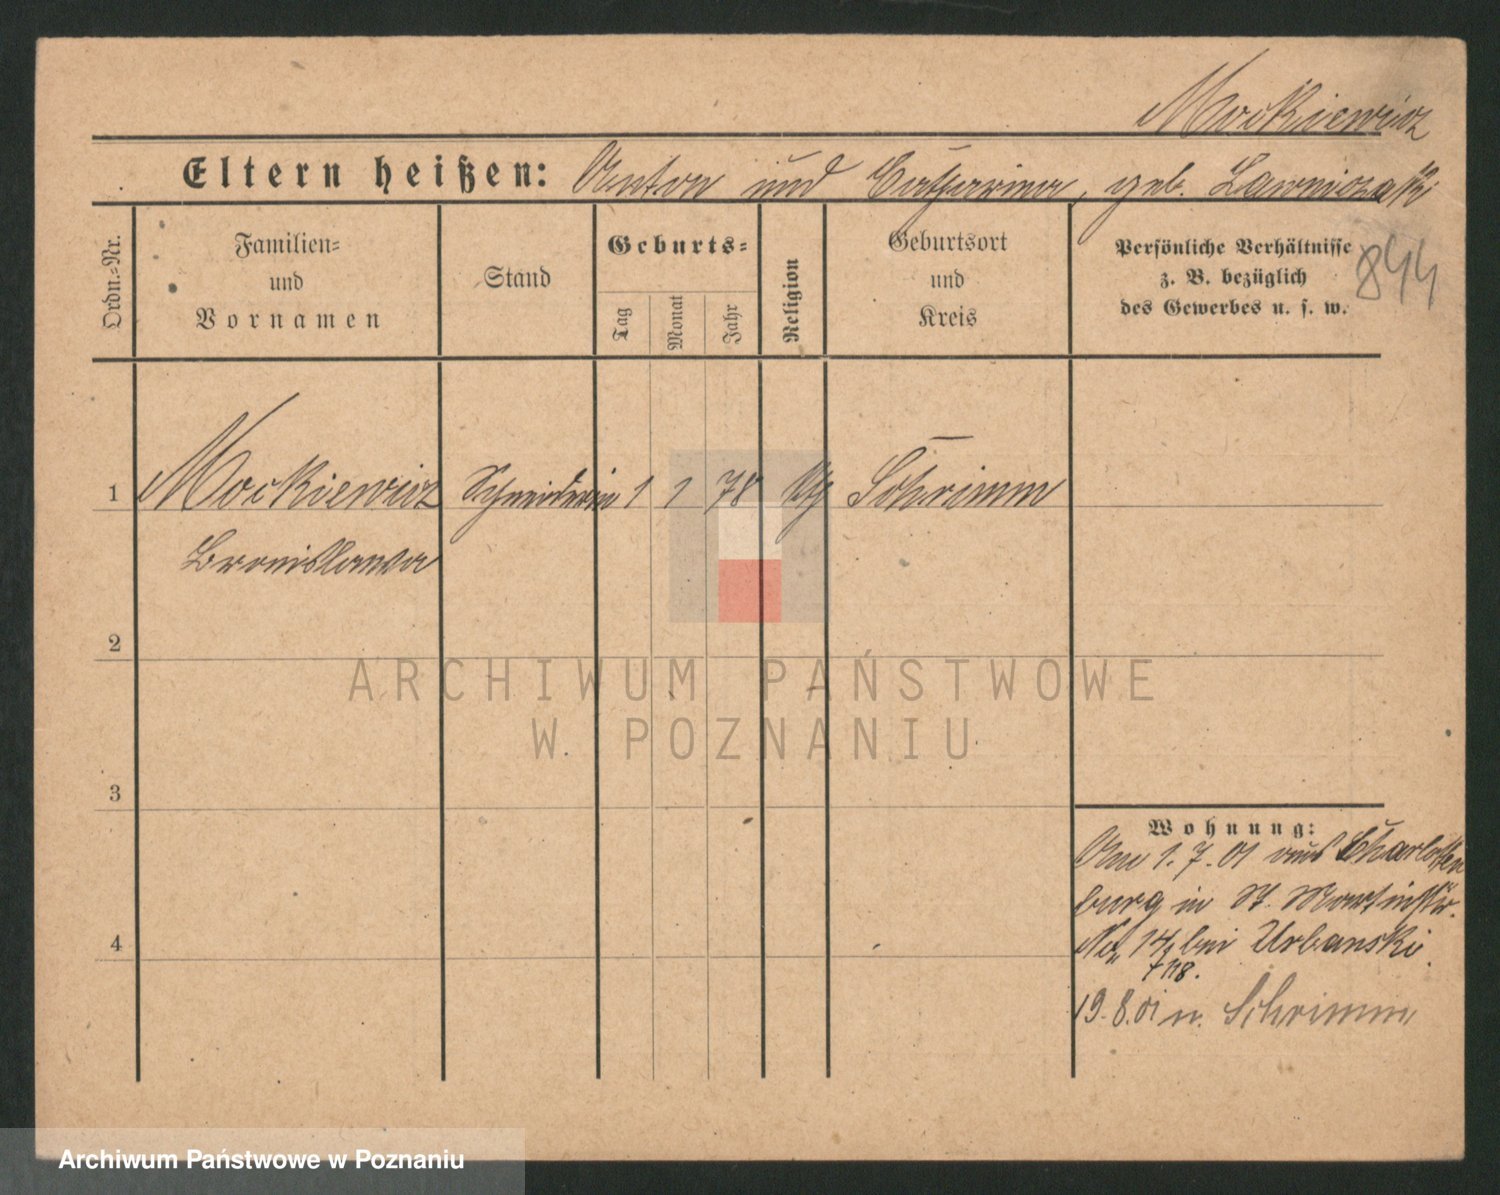 Mockiewicz
Eltern heißen: Anton und Catharina, geb. Lawniczak
844
Ordn.-Nr.
Familien-
und
Vornamen
Stand
Geburts-
Tag
Monat
Jahr
Religion
Geburtsort
und
Kreis
Persönliche Verhältnisse
z. B. bezüglich
des Gewerbes u. s. w.
1 Mockiewicz Schneiderin 1 1 78 kth Schrimm
Bronislawa
2
3
4
Wohnung:
Am 1.7.01 aus Charlotten
burg in St. Martinstr.
No 14 bei Urbanski.
7/18.
19.8.01 n. Schrimm
ARCHIWUM PAŃSTWOWE
W POZNANIU
Archiwum Państwowe w Poznaniu